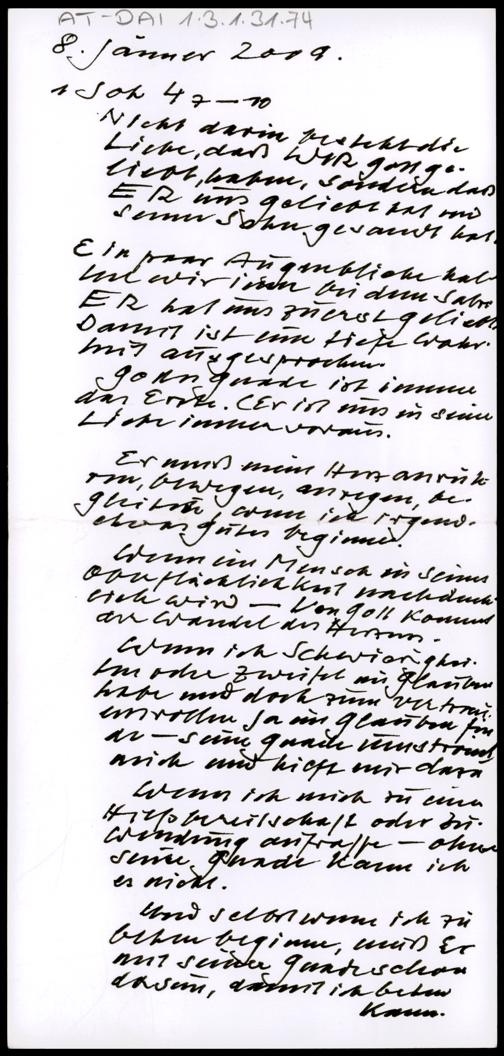 AT-DAI 1.3.1.31.74
8. Jänner 2009.
1 Joh 4 7–10
Nicht darin besteht die
Liebe, daß WIR Gott ge-
liebt haben, sondern daß
ER uns geliebt hat und
seinen Sohn gesandt hat.
Ein paar Augenblicke hal-
ten wir inne bei dem Satz
ER hat uns zuerst geliebt
Damit ist eine tiefe Wahr-
heit ausgesprochen.
Gottes Gnade ist immer
das Erste. (Er ist uns in seiner
Liebe immer voraus.
Er muß mein Herz anrüh-
ren, bewegen, anregen, be-
gleiten, wenn ich irgend-
etwas gutes beginne.
Wenn ein Mensch in seiner
Oberflächlichkeit nachdenk-
lich wird – Von Gott kommt
der Wandel des Herzens.
Wenn ich Schwierigkei-
ten oder Zweifel im Glauben
habe und doch zum vertrau-
ensvollen Ja im Glauben fin
de – seine Gnade umströmt
mich und hilft mir dazu
Wenn ich mich zu einer
Hilfsbereitschaft oder Zu-
wendung aufraffe – ohne
seine Gnade kann ich
es nicht.
Und selbst wenn ich zu
beten beginne, muß Er
mit seiner Gnade schon
da sein, damit ich beten
kann.